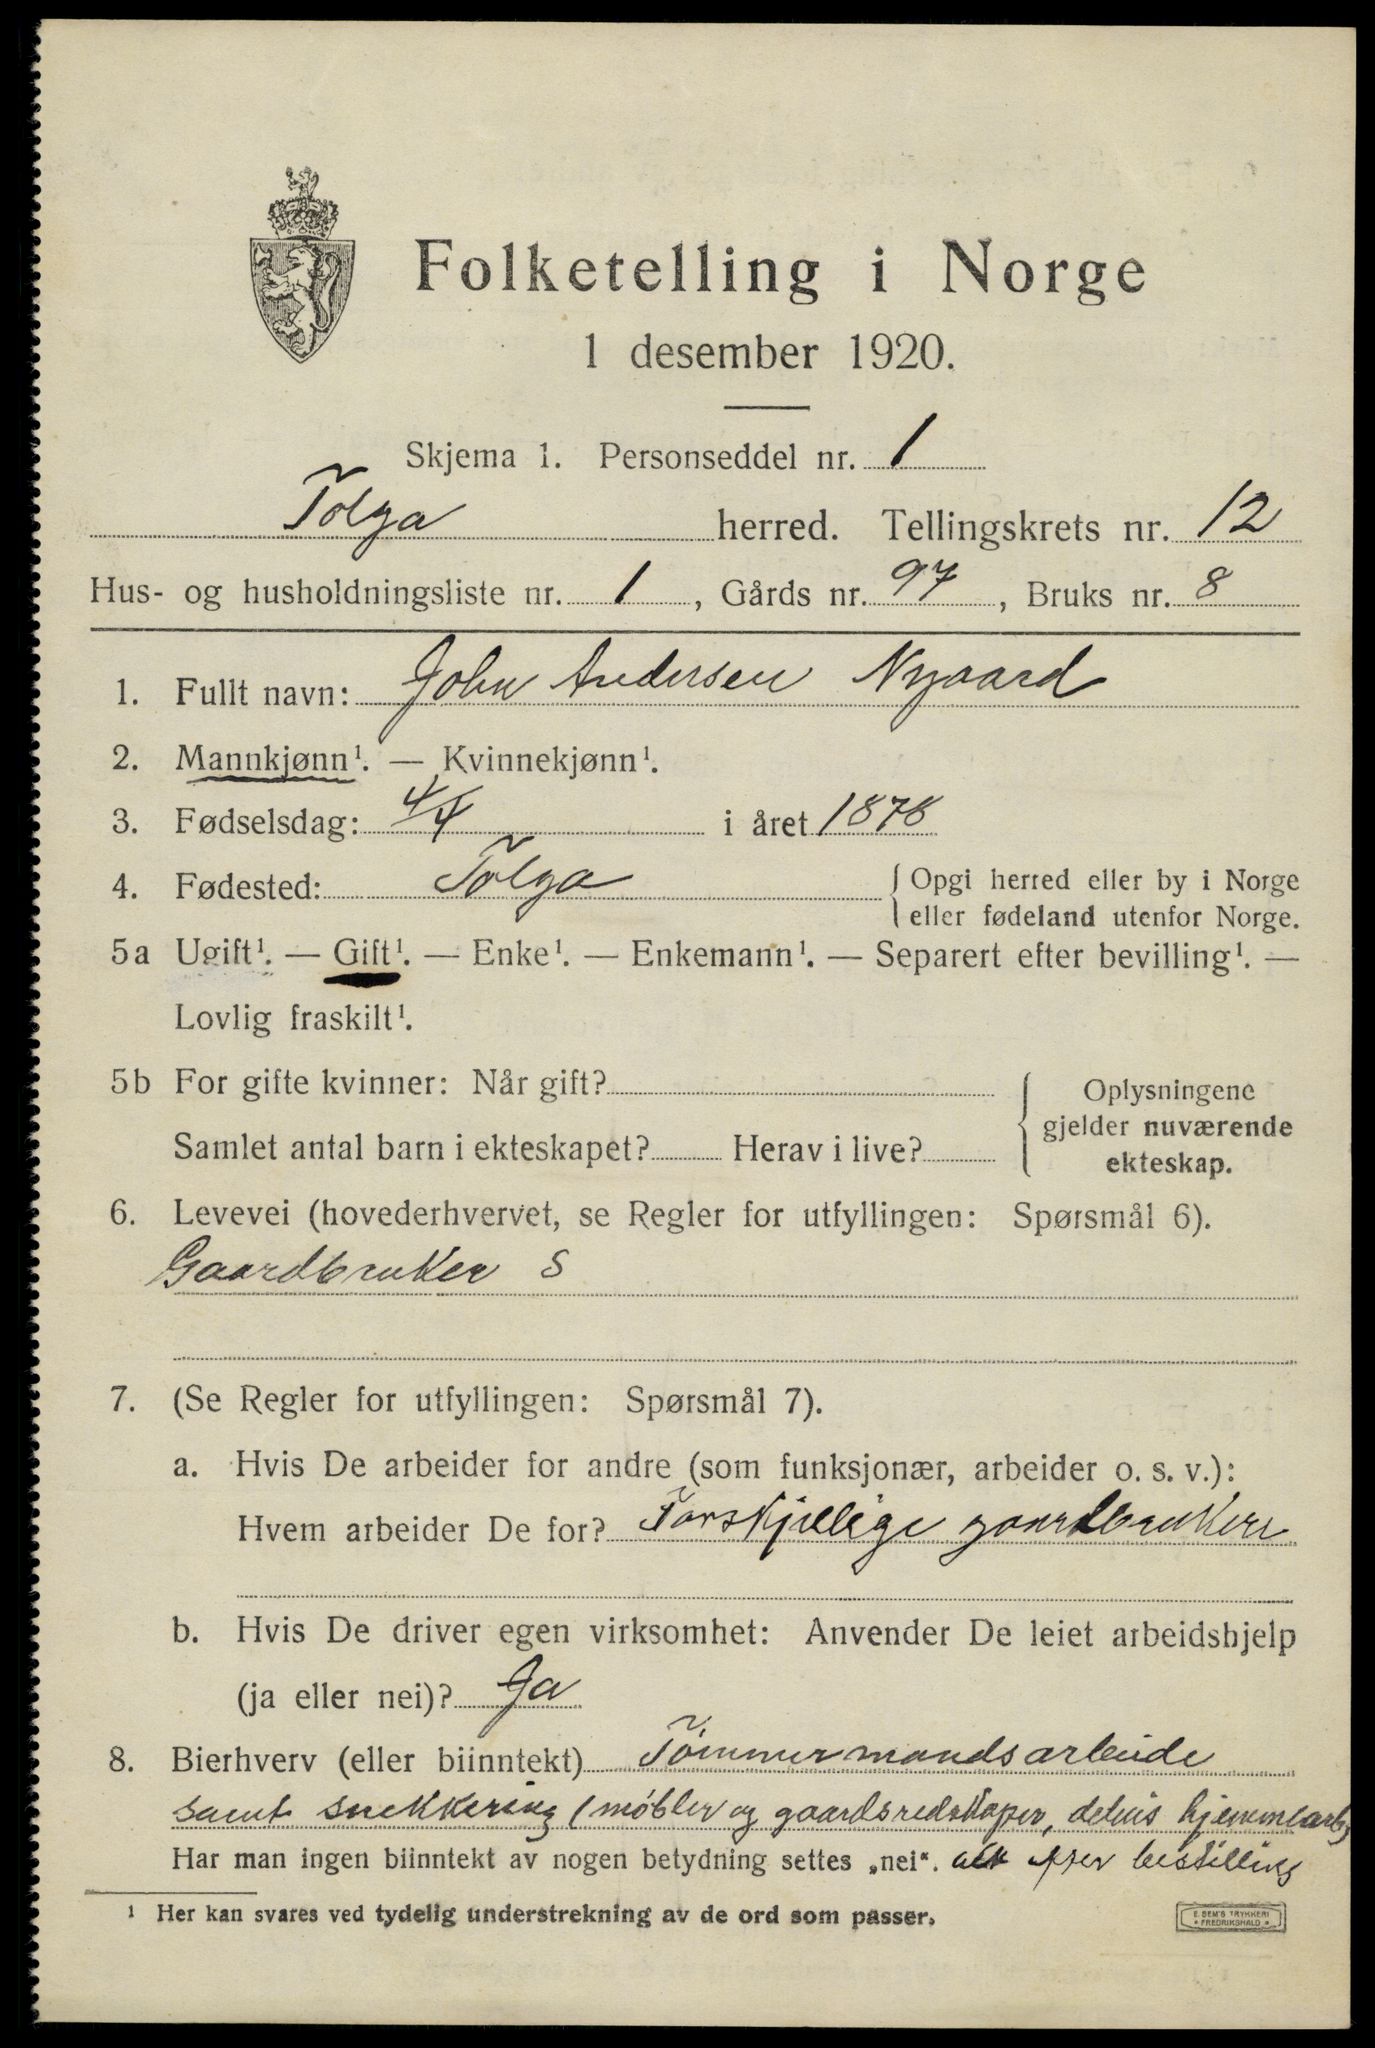 Folketelling i Norge
1 desember 1920.
Skjema 1. Personseddel nr. 1
Tolga herred. Tellingskrets nr. 12
Hus- og husholdningsliste nr. 1, Gårds nr. 97, Bruks nr. 8
1. Fullt navn: John Andersen Nygaard
2. Mannkjønn¹. — Kvinnekjønn¹.
3. Fødselsdag: 4/4 i året 1878
4. Fødested: Tolga { Opgi herred eller by i Norge
eller fødeland utenfor Norge.
5a Ugift¹. — Gift¹. — Enke¹. — Enkemann¹. — Separert efter bevilling¹. —
Lovlig fraskilt¹.
5b For gifte kvinner: Når gift? { Oplysningene
gjelder nuværende
Samlet antal barn i ekteskapet? Herav i live? ekteskap.
6. Levevei (hovederhvervet, se Regler for utfyllingen: Spørsmål 6).
Gaardbruker S
7. (Se Regler for utfyllingen: Spørsmål 7).
a. Hvis De arbeider for andre (som funksjonær, arbeider o. s. v.):
Hvem arbeider De for? Forskjellige gaardbrukere
b. Hvis De driver egen virksomhet: Anvender De leiet arbeidshjelp
(ja eller nei)? Ja
8. Bierhverv (eller biinntekt) Tømmermandsarbeide
samt snekkering (møbler og gaardsredskaper, delvis hjemmearb
Har man ingen biinntekt av nogen betydning settes „nei“. alt efter bestilling
¹ Her kan svares ved tydelig understrekning av de ord som passer.
E. SEM'S TRYKKERI
* FREDRIKSHALD *